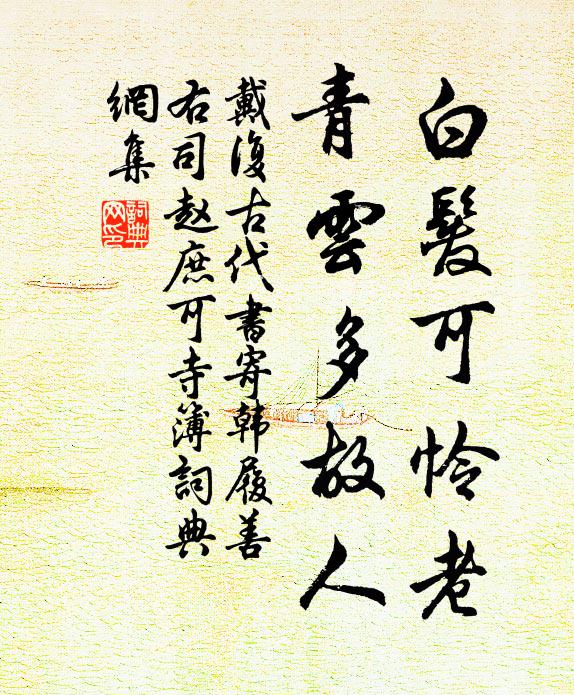 白髮可怜老
青雲多故人
戴復古代書寄韩履善
右司赵庶可寺簿詞典
網集
詞典
网印